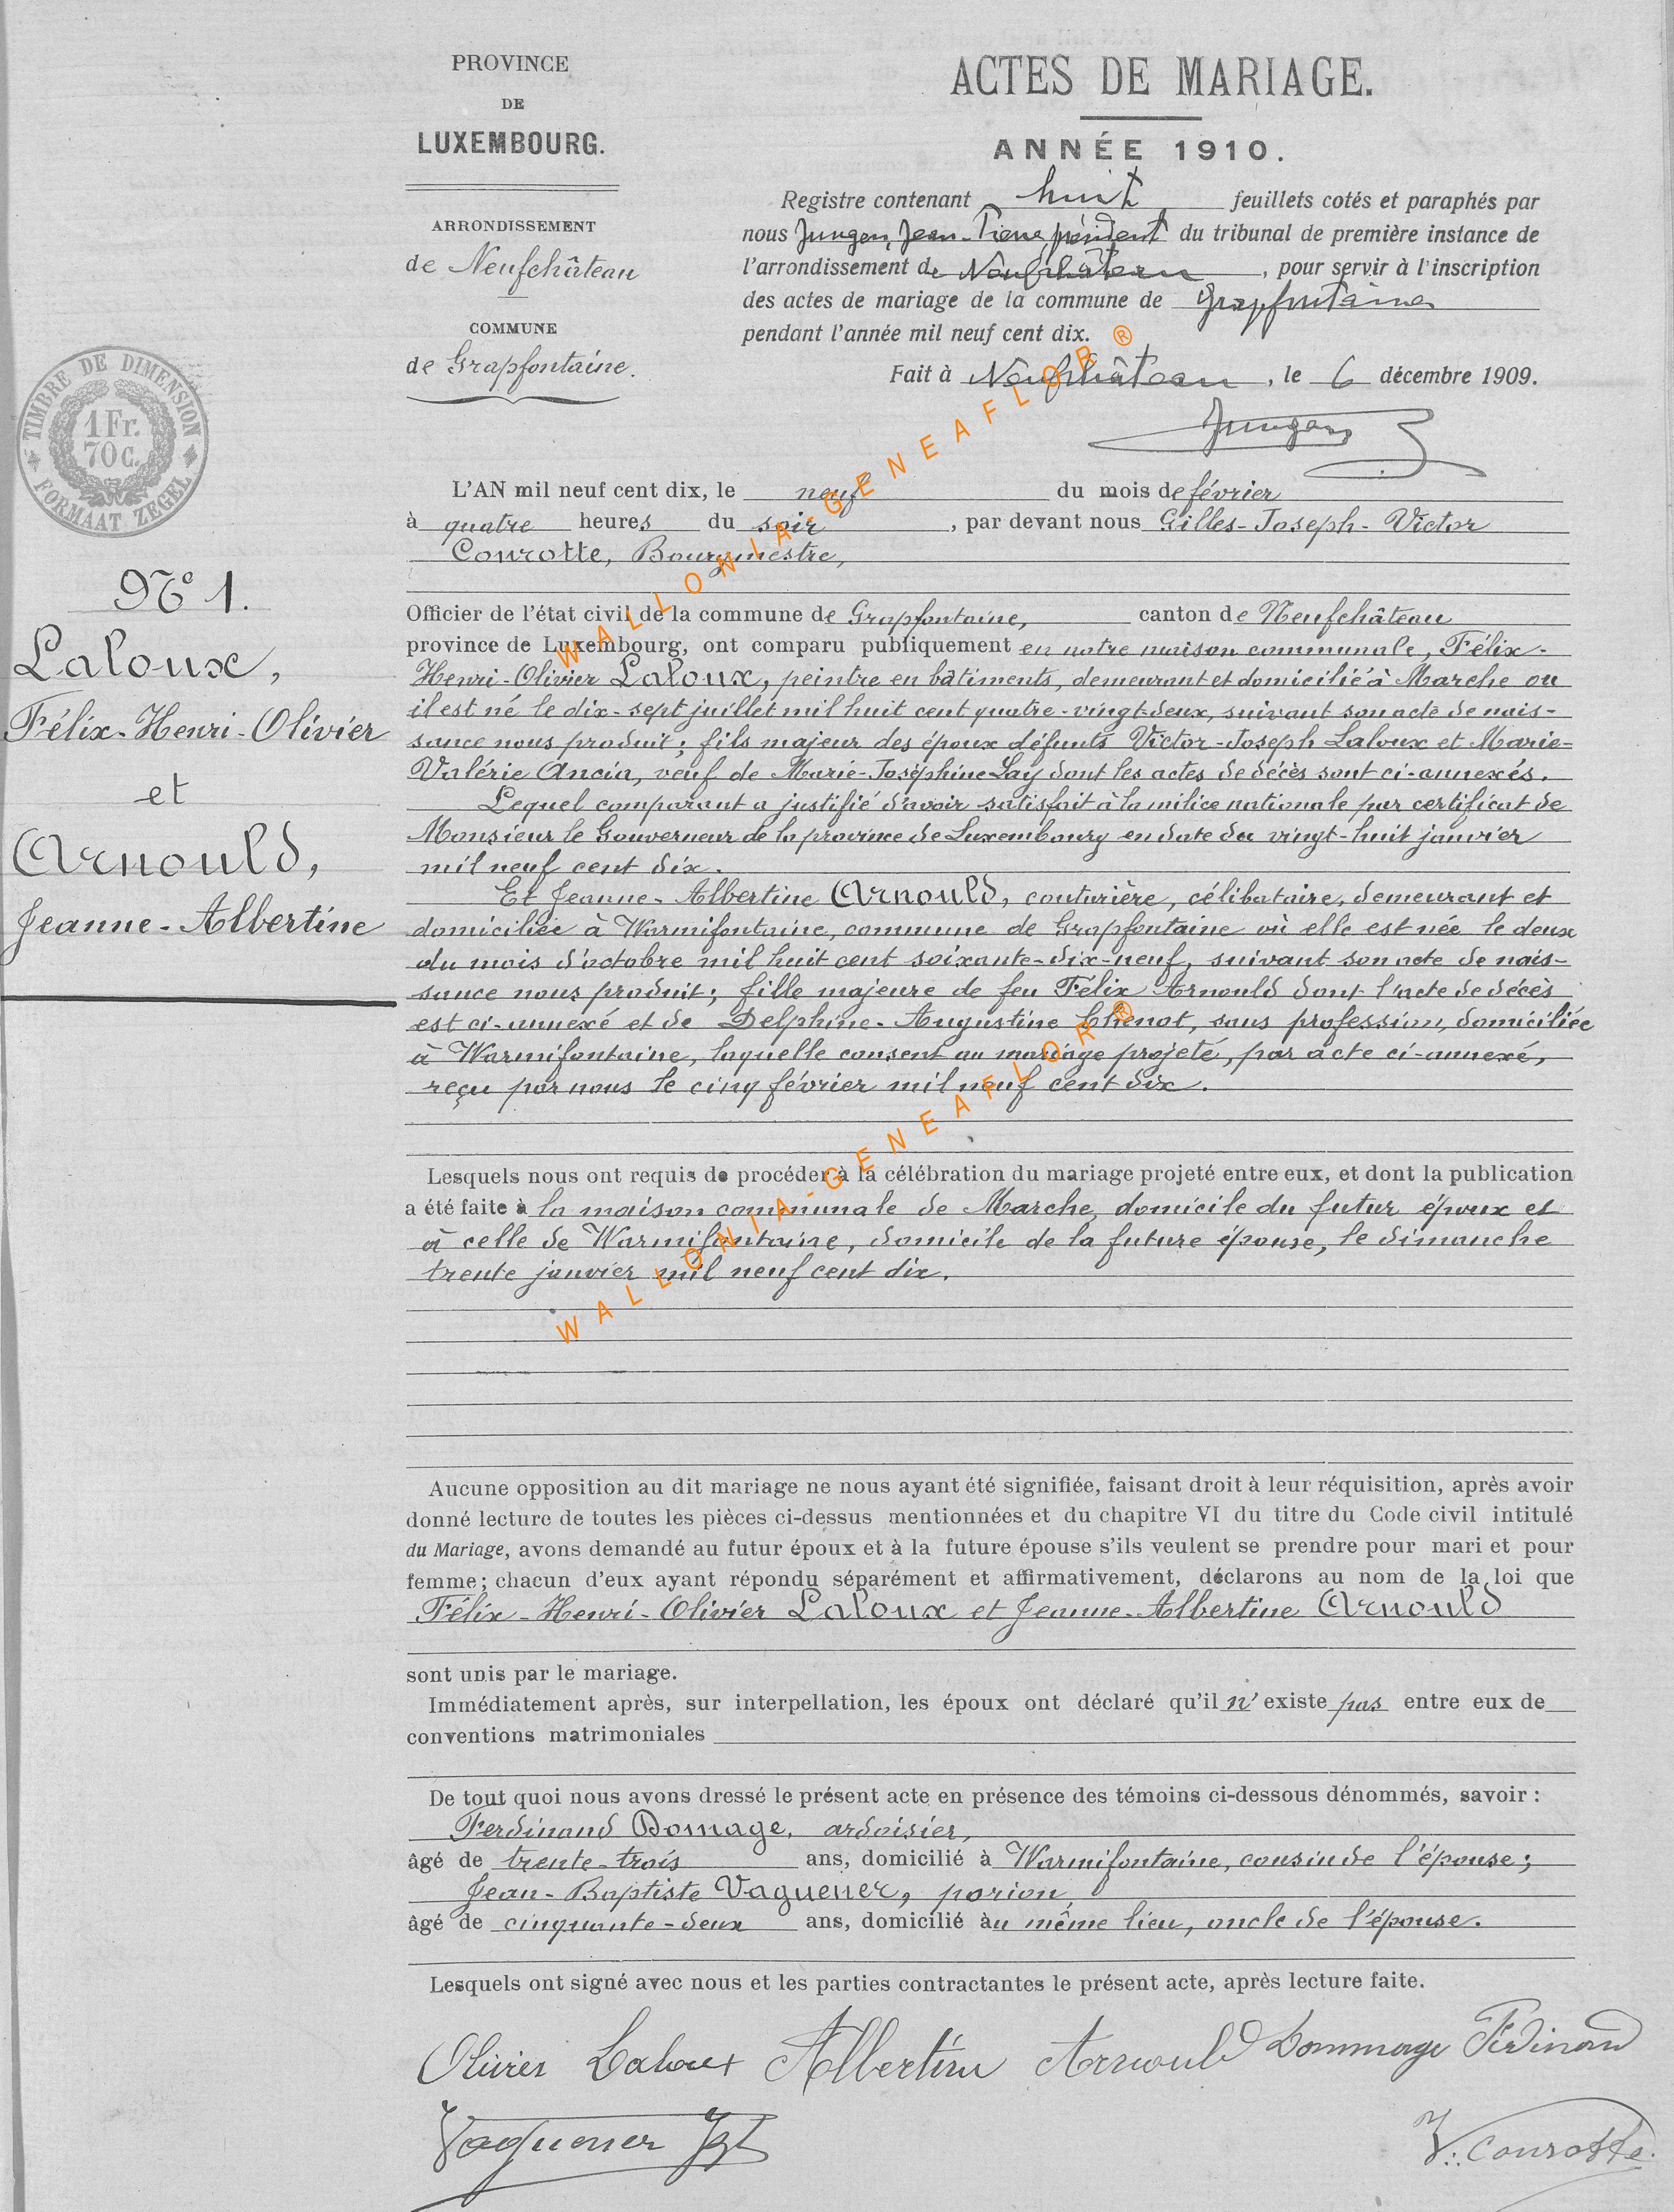 PROVINCE
DE
LUXEMBOURG.
ARRONDISSEMENT
de Neufchâteau
COMMUNE
de Grapfontaine.
TIMBRE DE DIMENSION
1 Fr.
70 C.
FORMAAT ZEGEL
ACTES DE MARIAGE.
ANNÉE 1910.
Registre contenant huit feuillets cotés et paraphés par
nous Jungen, Jean-Pierre, président du tribunal de première instance de
l'arrondissement de Neufchâteau, pour servir à l'inscription
des actes de mariage de la commune de Grapfontaine
pendant l'année mil neuf cent dix.
Fait à Neufchâteau, le 6 décembre 1909.
Jungen
N° 1.
Laloux,
Félix-Henri-Olivier
et
Arnould,
Jeanne-Albertine
L'AN mil neuf cent dix, le neuf du mois de février
à quatre heures du soir, par devant nous Gilles-Joseph-Victor
Courotte, Bourgmestre,
Officier de l'état civil de la commune de Grapfontaine, canton de Neufchâteau
province de Luxembourg, ont comparu publiquement en notre maison communale, Félix-
Henri-Olivier Laloux, peintre en bâtiments, demeurant et domicilié à Marche ou
il est né le dix-sept juillet mil huit cent quatre-vingt-deux, suivant son acte de nais-
sance nous produit; fils majeur des époux défunts Victor-Joseph Laloux et Marie-
Valérie Ancia, veuf de Marie-Joséphine Lay dont les actes de décès sont ci-annexés.
Lequel comparant a justifié d'avoir satisfait à la milice nationale par certificat de
Monsieur le Gouverneur de la province de Luxembourg en date du vingt-huit janvier
mil neuf cent dix.
Et Jeanne-Albertine Arnould, couturière, célibataire, demeurant et
domiciliée à Warmifontaine, commune de Grapfontaine où elle est née le deux
du mois d'octobre mil huit cent soixante-dix-neuf, suivant son acte de nais-
sance nous produit; fille majeure de feu Félix Arnould dont l'acte de décès
est ci-annexé et de Delphine-Augustine Chenot, sans profession, domiciliée
à Warmifontaine, laquelle consent au mariage projeté, par acte ci-annexé,
reçu par nous le cinq février mil neuf cent dix.
Lesquels nous ont requis de procéder à la célébration du mariage projeté entre eux, et dont la publication
a été faite à la maison communale de Marche, domicile du futur époux et
à celle de Warmifontaine, domicile de la future épouse, le dimanche
trente janvier mil neuf cent dix.
Aucune opposition au dit mariage ne nous ayant été signifiée, faisant droit à leur réquisition, après avoir
donné lecture de toutes les pièces ci-dessus mentionnées et du chapitre VI du titre du Code civil intitulé
du Mariage, avons demandé au futur époux et à la future épouse s'ils veulent se prendre pour mari et pour
femme; chacun d'eux ayant répondu séparément et affirmativement, déclarons au nom de la loi que
Félix-Henri-Olivier Laloux et Jeanne-Albertine Arnould
sont unis par le mariage.
Immédiatement après, sur interpellation, les époux ont déclaré qu'il n'existe pas entre eux de
conventions matrimoniales
De tout quoi nous avons dressé le présent acte en présence des témoins ci-dessous dénommés, savoir :
Ferdinand Domage, ardoisier,
âgé de trente-trois ans, domicilié à Warmifontaine, cousin de l'épouse;
Jean-Baptiste Vaguener, porion,
âgé de cinquante-deux ans, domicilié au même lieu, oncle de l'épouse.
Lesquels ont signé avec nous et les parties contractantes le présent acte, après lecture faite.
Olivier Laloux Albertine Arnould Dommage Ferdinand
Vaguener JBt V. Courotte
WALLONIA-GENEAFLOR®
WALLONIA-GENEAFLOR®